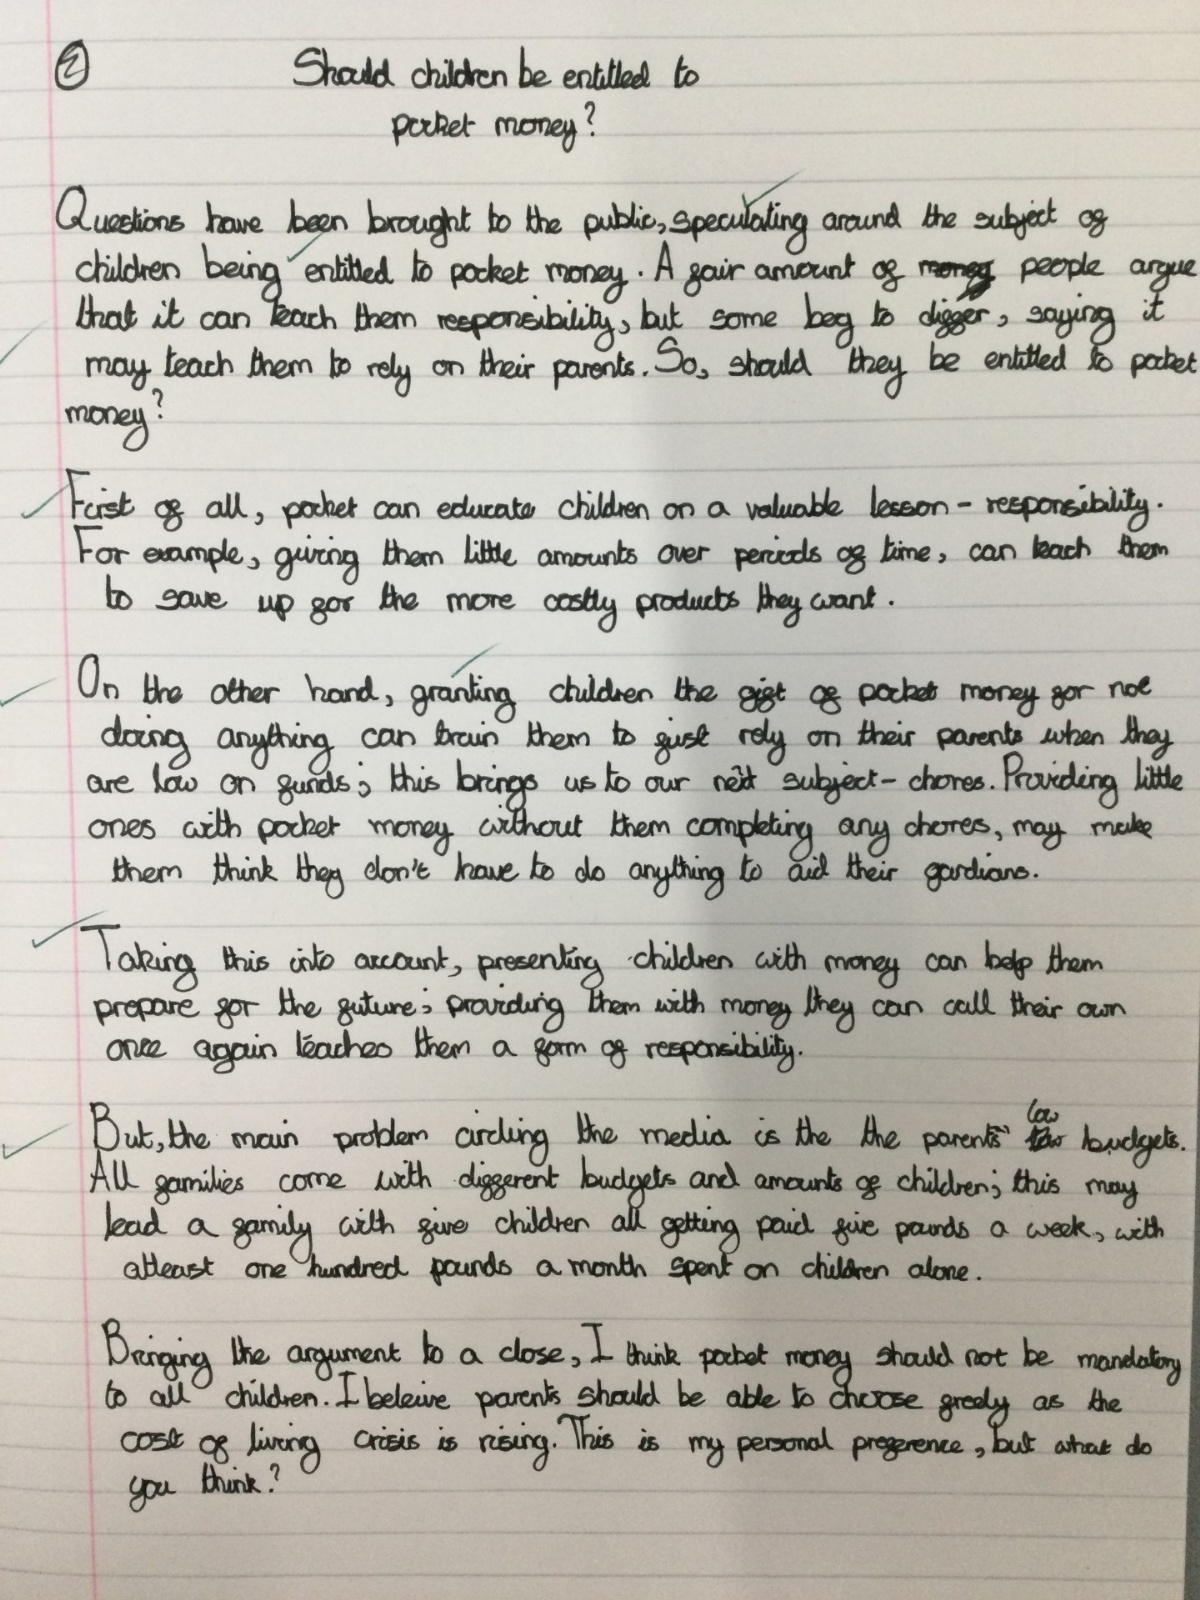 ②
Should children be entitled to
pocket money?
Questions have been brought to the public, speculating around the subject of
children being entitled to pocket money. A fair amount of money people argue
that it can teach them responsibility, but some beg to differ, saying it
may teach them to rely on their parents. So, should they be entitled to pocket
money?
First of all, pocket can educate children on a valuable lesson - responsibility.
For example, giving them little amounts over periods of time, can teach them
to save up for the more costly products they want.
On the other hand, granting children the gift of pocket money for not
doing anything can train them to just rely on their parents when they
are low on funds; this brings us to our next subject - chores. Providing little
ones with pocket money without them completing any chores, may make
them think they don't have to do anything to aid their gardians.
Taking this into account, presenting children with money can help them
prepare for the future; providing them with money they can call their own
once again teaches them a form of responsibility.
But, the main problem circling the media is the the parents' low budgets.
All families come with different budgets and amounts of children; this may
lead a family with five children all getting paid five pounds a week, with
atleast one hundred pounds a month spent on children alone.
Bringing the argument to a close, I think pocket money should not be mandatory
to all children. I beleive parents should be able to choose freely as the
cost of living crisis is rising. This is my personal preference, but what do
you think?